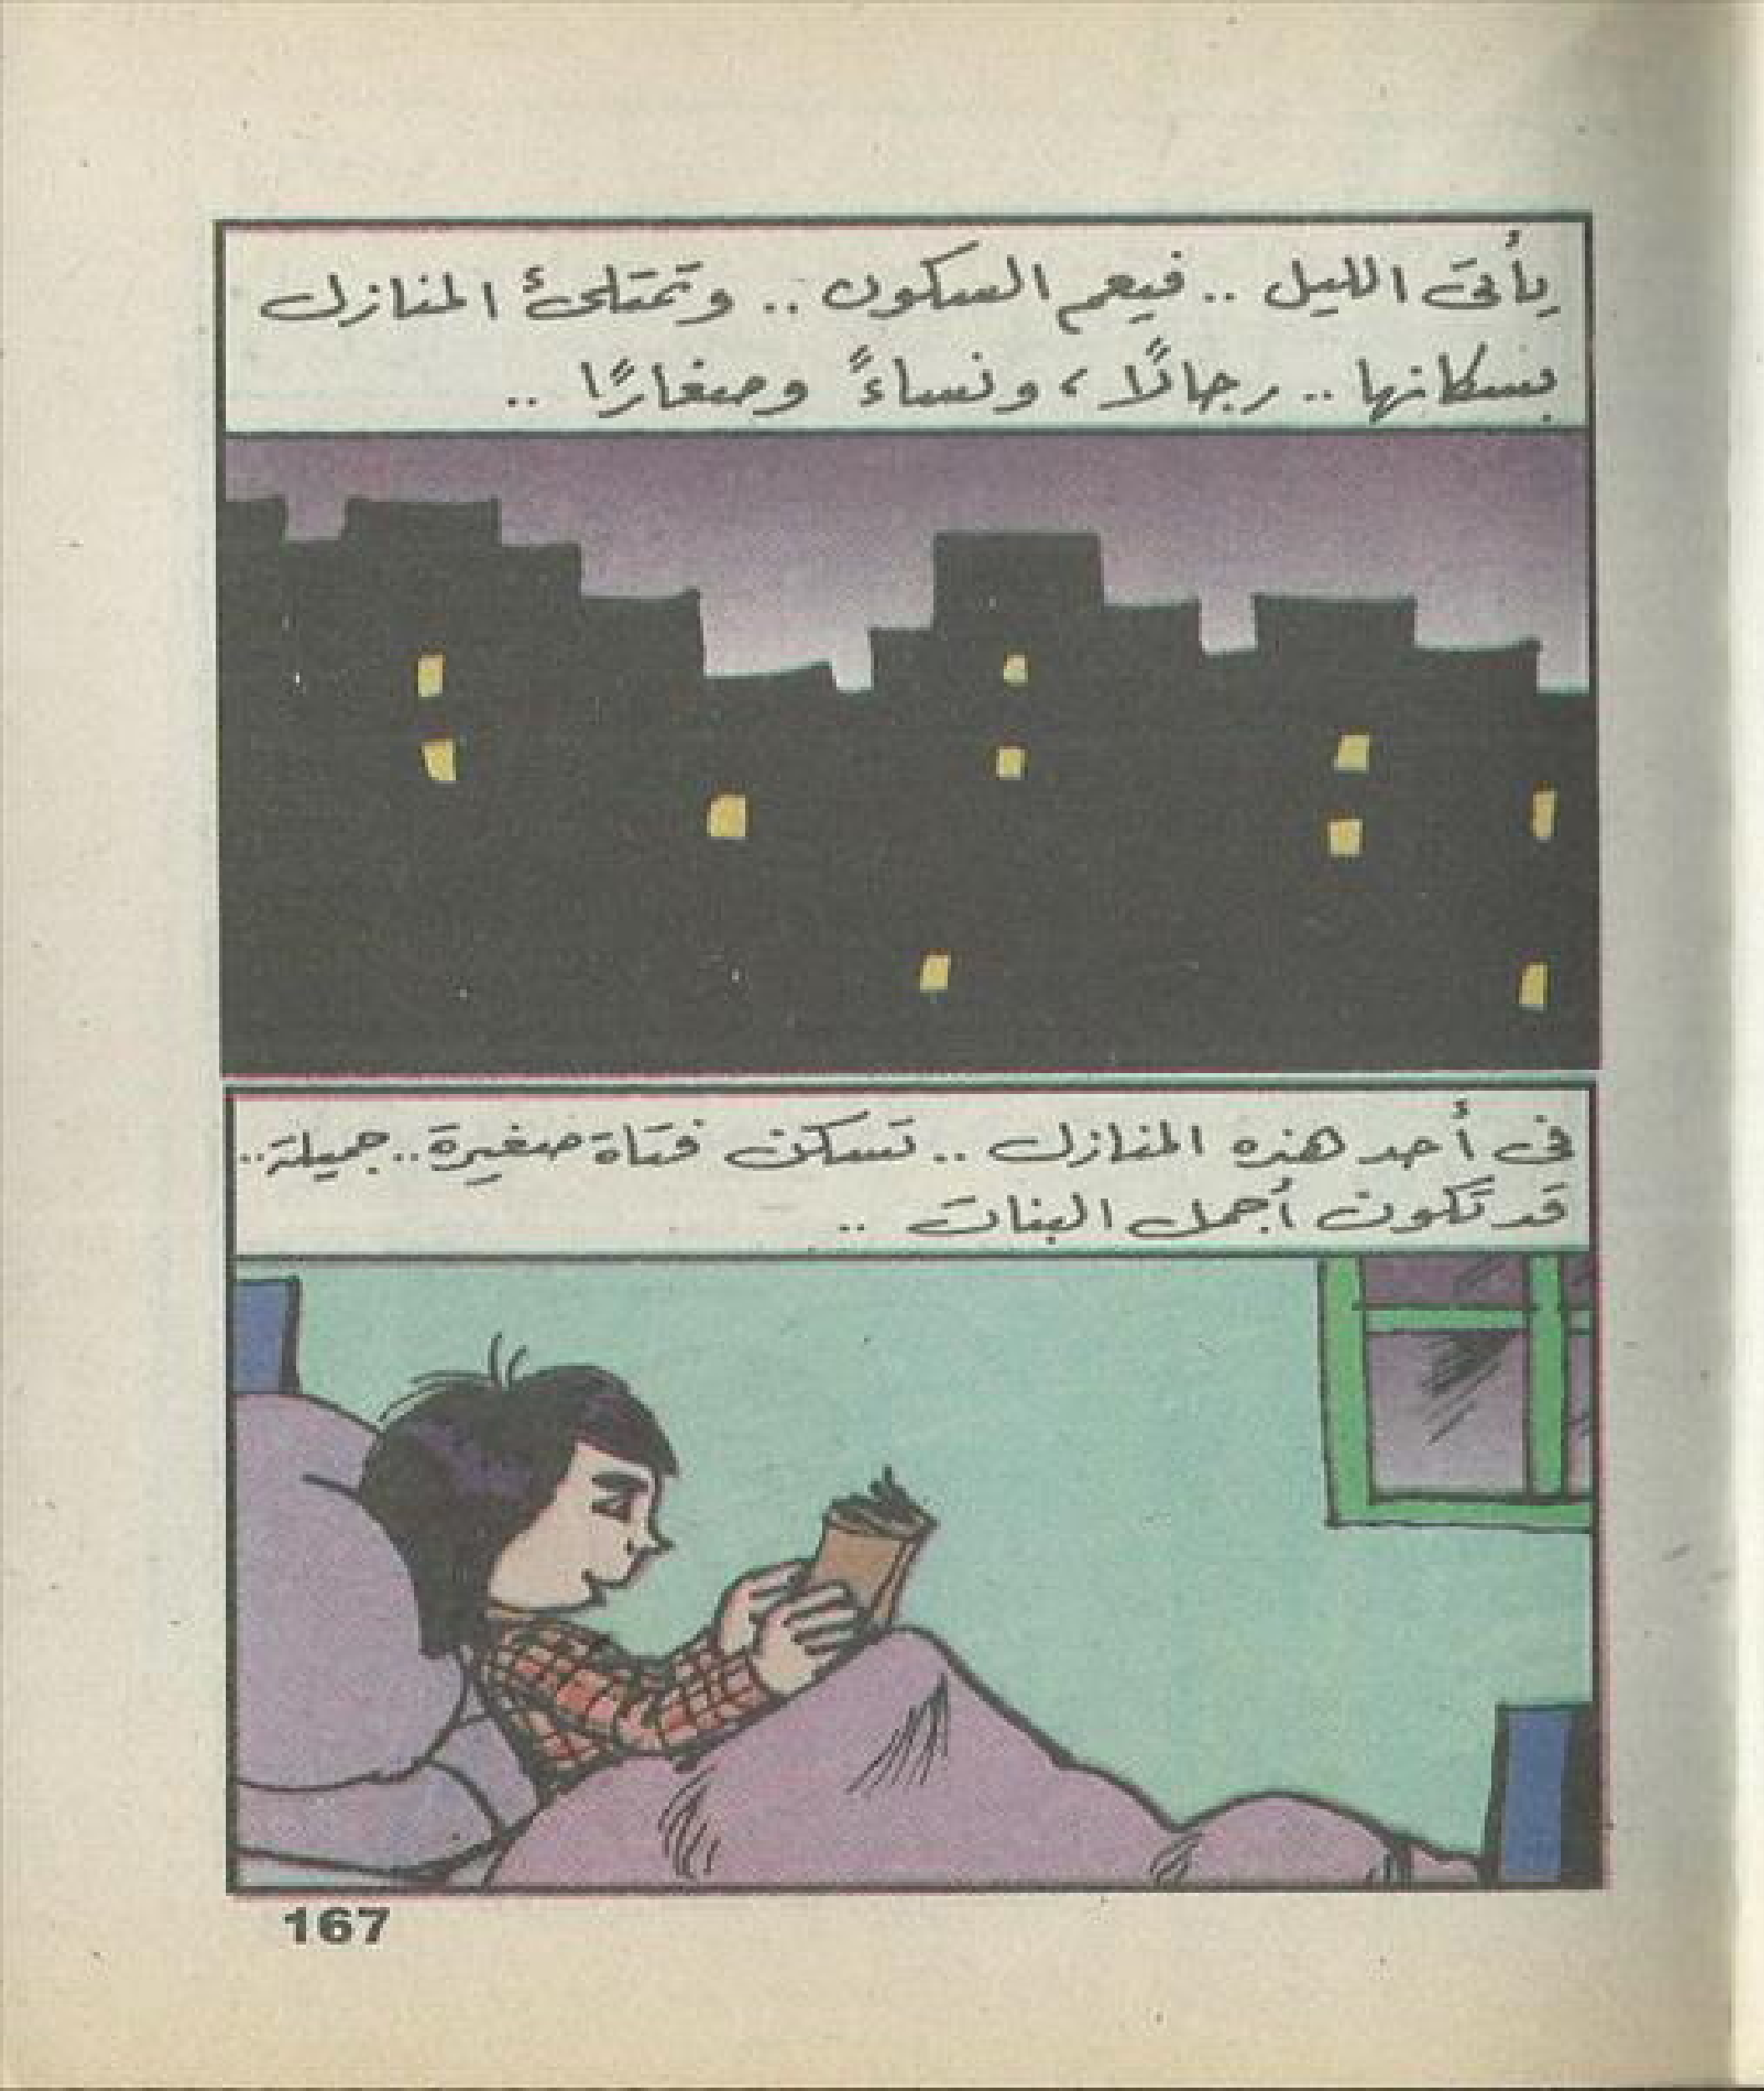 يأتى الليل .. فيعم السكون .. وتمتلئ المنازل
بسكانها .. رجالًا ، ونساءً وصغارًا ..
فى أحد هذه المنازل .. تسكن فتاة صغيرة .. جميلة ..
قد تكون أجمل البنات ..
167